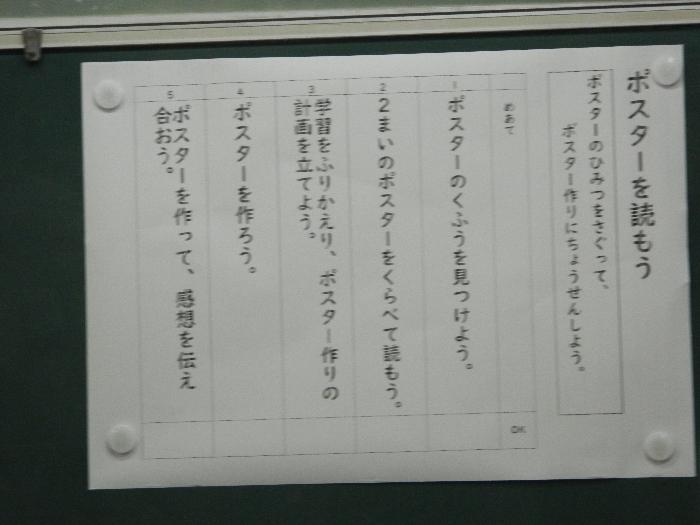 ポスターを読もう
ポスターのひみつをさぐって、
ポスター作りにちょうせんしよう。
めあて
OK
1
ポスターのくふうを見つけよう。
2
2まいのポスターをくらべて読もう。
3
学習をふりかえり、ポスター作りの
計画を立てよう。
4
ポスターを作ろう。
5
ポスターを作って、感想を伝え
合おう。